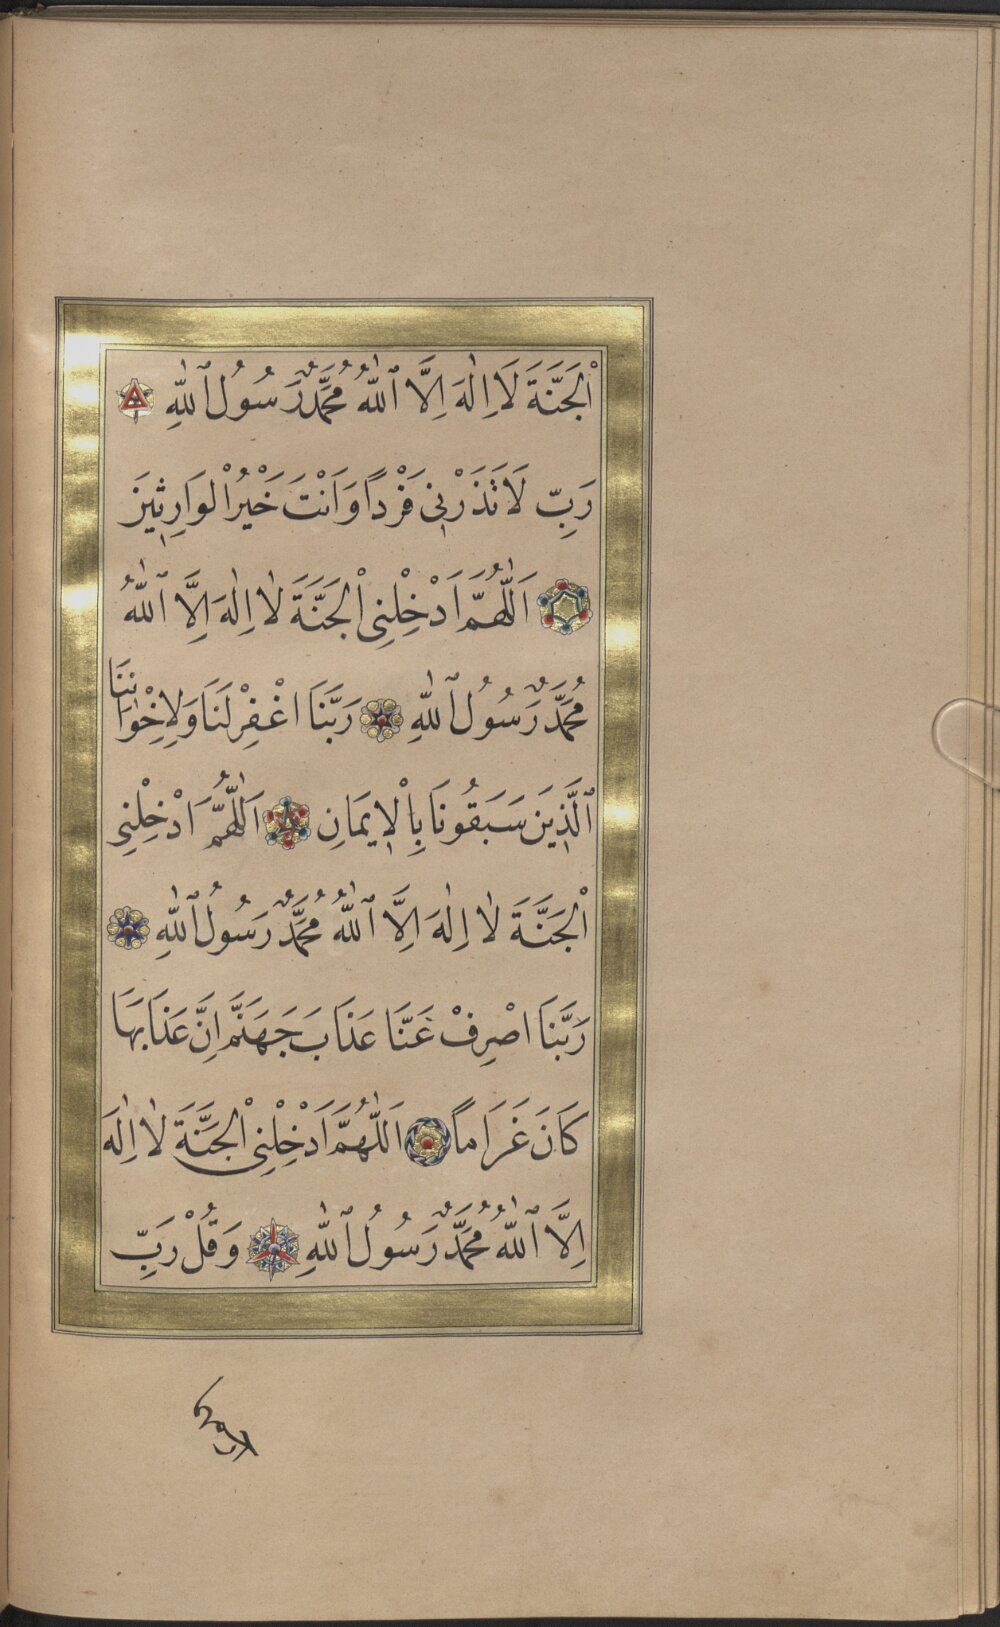 اْلجَنَّةَ لَا اِلٰهَ اِلَّا ٱللّٰهُ مُحَمَّدٌ رَسُولُ ٱللّٰهِ
رَبِّ لَا تَذَرْنٖى فَرْدًا وَاَنْتَ خَيْرُ اْلوَارِثٖينَ
اَللّٰهُمَّ اَدْخِلْنِى اْلجَنَّةَ لَا اِلٰهَ اِلَّا ٱللّٰهُ
مُحَمَّدٌ رَسُولُ ٱللّٰهِ رَبَّنَا اغْفِرْ لَنَا وَلِاِخْوَانِنَا
ٱلَّذٖينَ سَبَقُونَا بِاْلاٖيمَانِ اَللّٰهُمَّ اَدْخِلْنِى
اْلجَنَّةَ لَا اِلٰهَ اِلَّا ٱللّٰهُ مُحَمَّدٌ رَسُولُ ٱللّٰهِ
رَبَّنَا اصْرِفْ عَنَّا عَذَابَ جَهَنَّمَ اِنَّ عَذَابَهَا
كَانَ غَرَاماً اَللّٰهُمَّ اَدْخِلْنِى اْلجَنَّةَ لَا اِلٰهَ
اِلَّا ٱللّٰهُ مُحَمَّدٌ رَسُولُ ٱللّٰهِ وَقُلْ رَبِّ